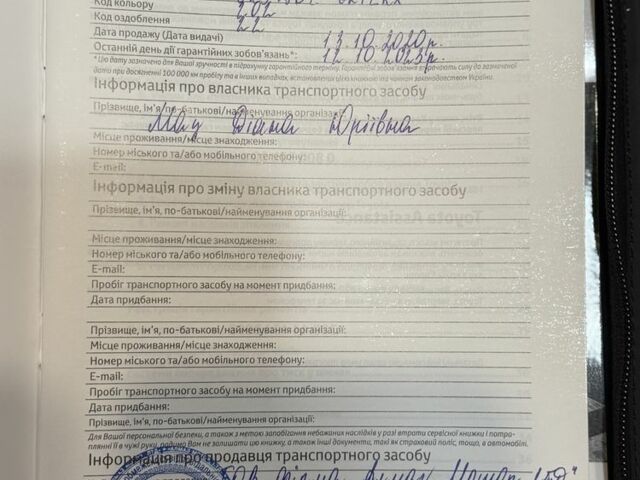 Код кольору 202
Код оздоблення 22
Дата продажу (Дата видачі) 13.10.2020р.
Останній день дії гарантійних зобов'язань*: 12.10.2023р.
* Цю дату зазначено для Вашої зручності в підрахунку гарантійного терміну. Гарантійні зобов'язання втрачають силу до зазначеної
дати при досягненні 100 000 км пробігу та в інших випадках, встановлених цією книжкою та чинним законодавством України.
Інформація про власника транспортного засобу
Прізвище, ім'я по-батькові/найменування організації:
Діана Юріївна
Місце проживання/місце знаходження:
Номер міського та/або мобільного телефону:
E-mail:
Інформація про зміну власника транспортного засобу
Прізвище, ім'я, по-батькові/найменування організації:
Місце проживання/місце знаходження:
Номер міського та/або мобільного телефону:
E-mail:
Пробіг транспортного засобу на момент придбання:
Дата придбання:
Прізвище, ім'я, по-батькові/найменування організації:
Місце проживання/місце знаходження:
Номер міського та/або мобільного телефону:
E-mail:
Пробіг транспортного засобу на момент придбання:
Дата придбання:
Прізвище, ім'я, по-батькові/найменування організації:
Для Вашої персональної безпеки, а також з метою запобігання небажаних наслідків у разі втрати сервісної книжки і потра-
плянні її в чужі руки, радимо Вам не залишати цю книжку, а також інші документи, такі як страховий поліс, тощо, в автомобілі.
Інформація про продавця транспортного засобу